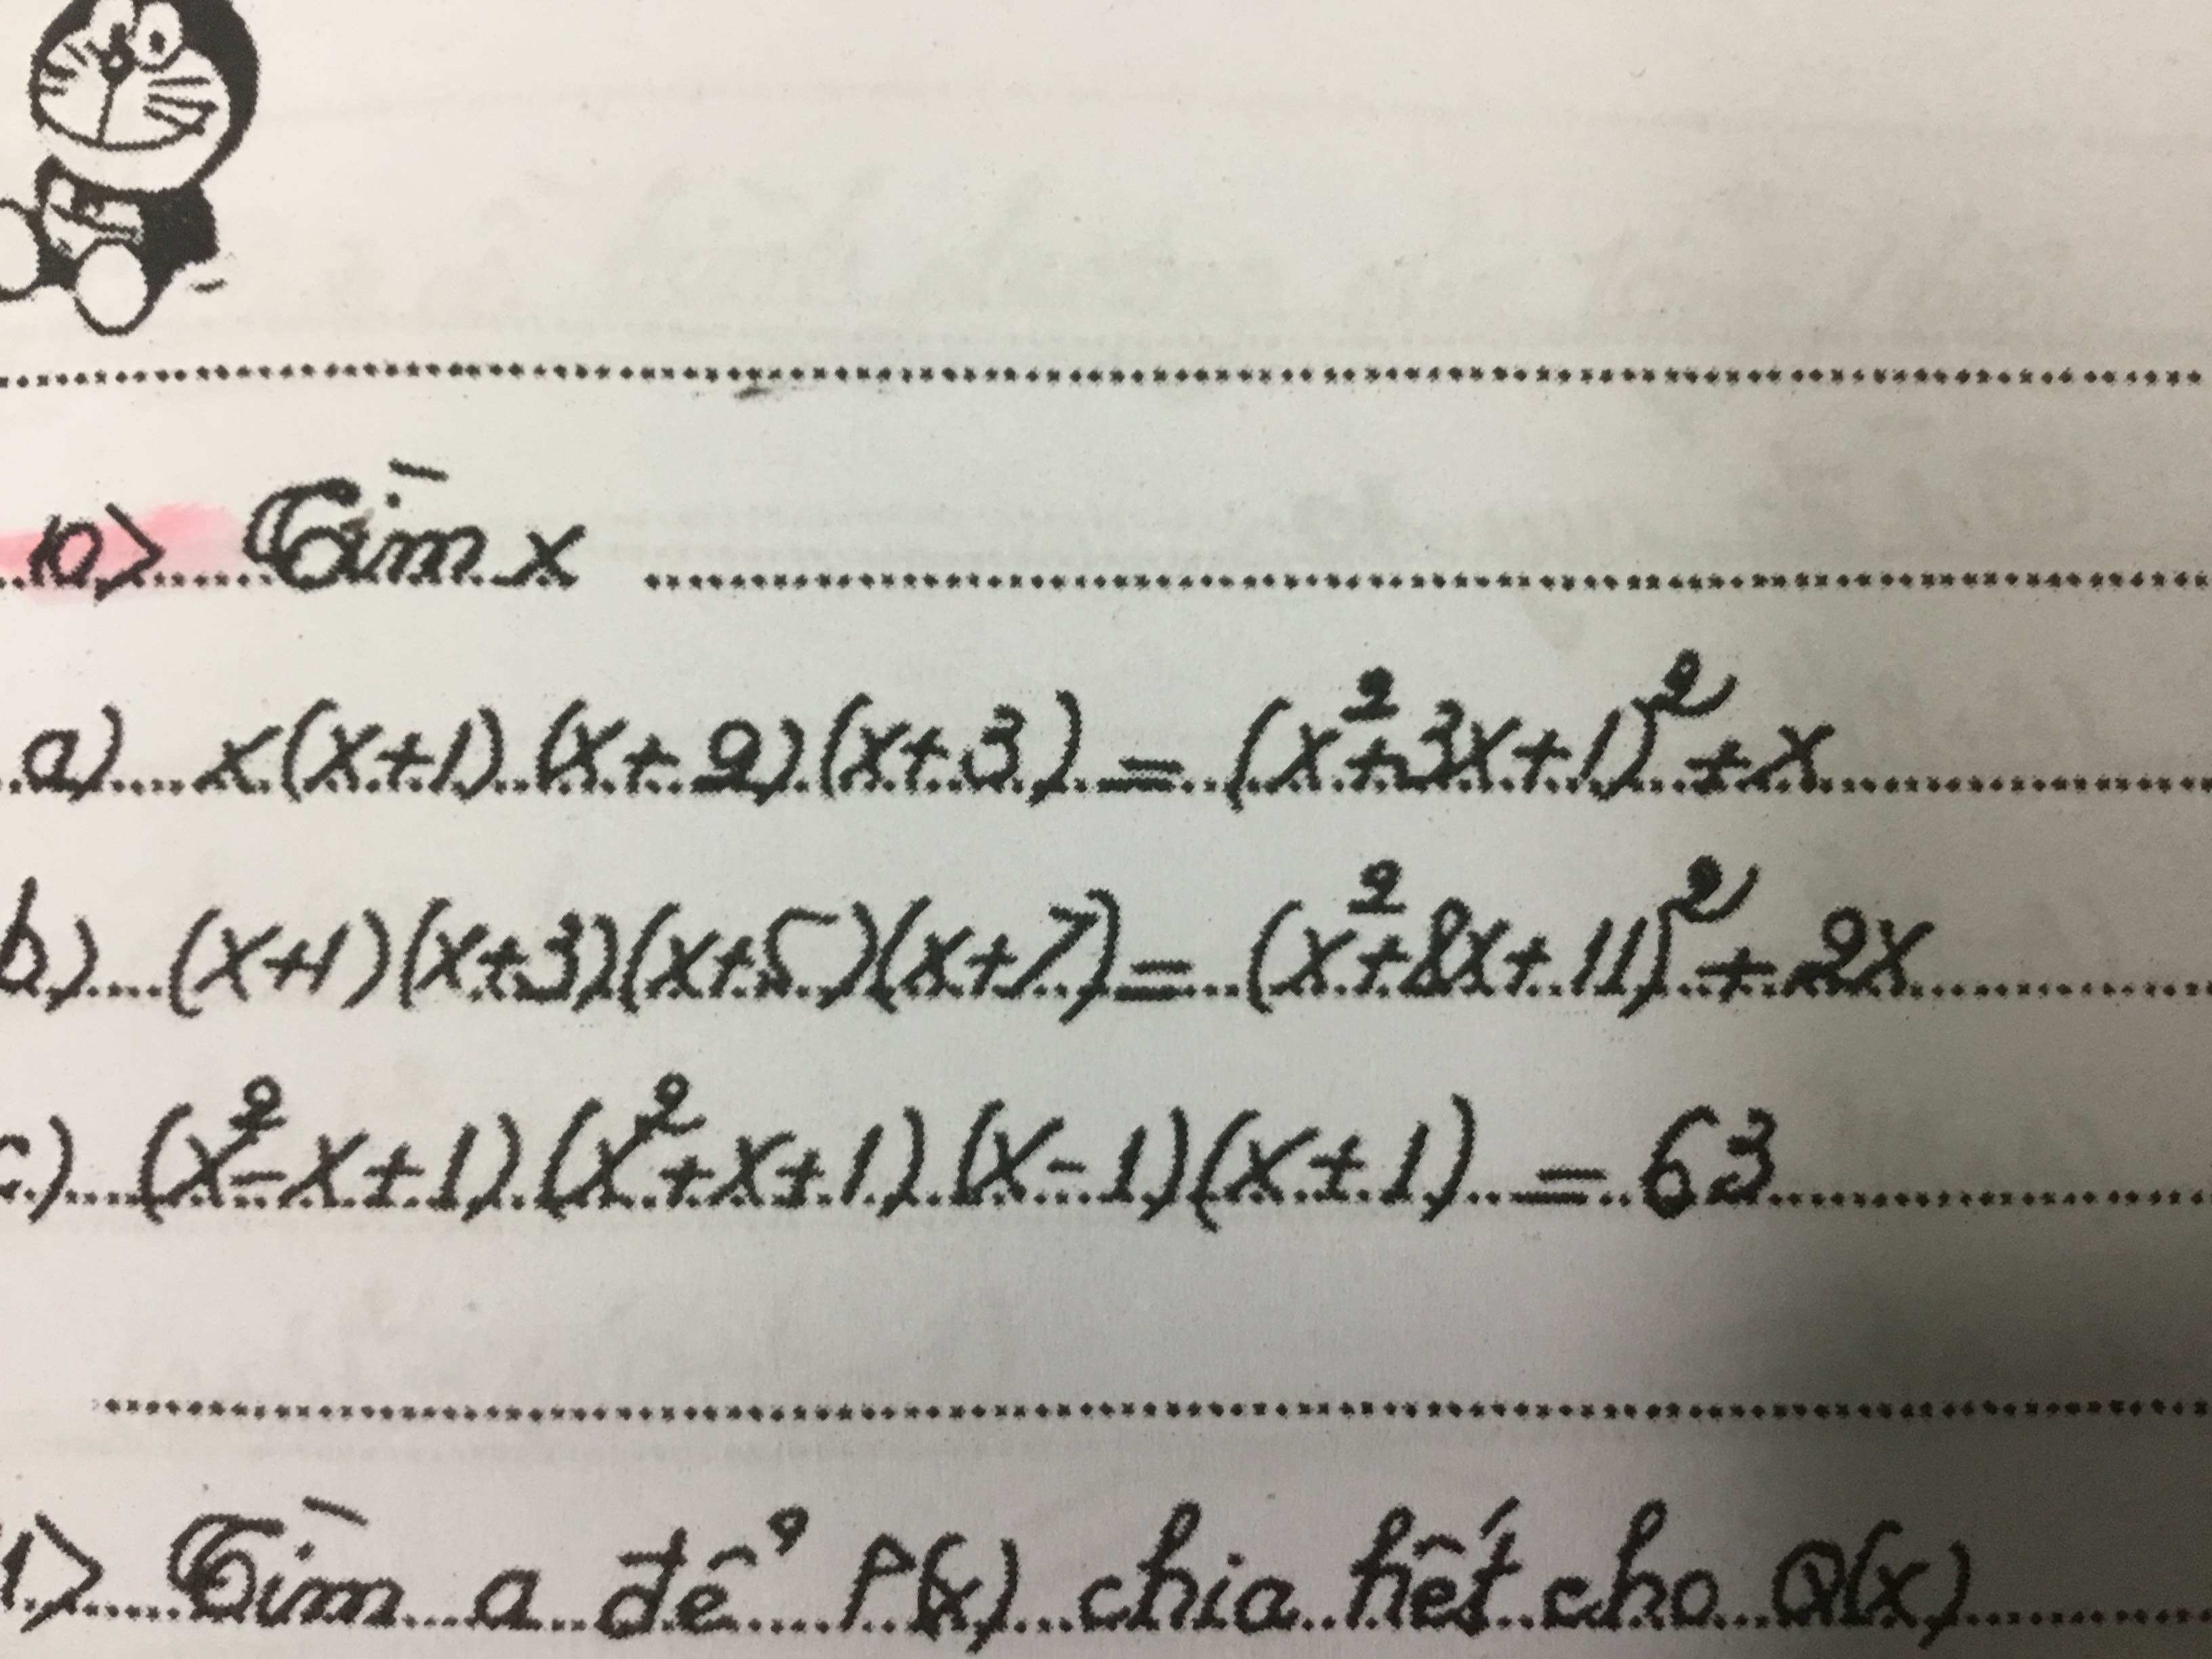 10> Tìm x
a) x(x+1)(x+2)(x+3) = (x²+3x+1)²+x
b) (x+1)(x+3)(x+5)(x+7) = (x²+8x+11)²+2x
c) (x²-x+1)(x²+x+1)(x-1)(x+1) = 63
1> Tìm a để P(x) chia hết cho Q(x)